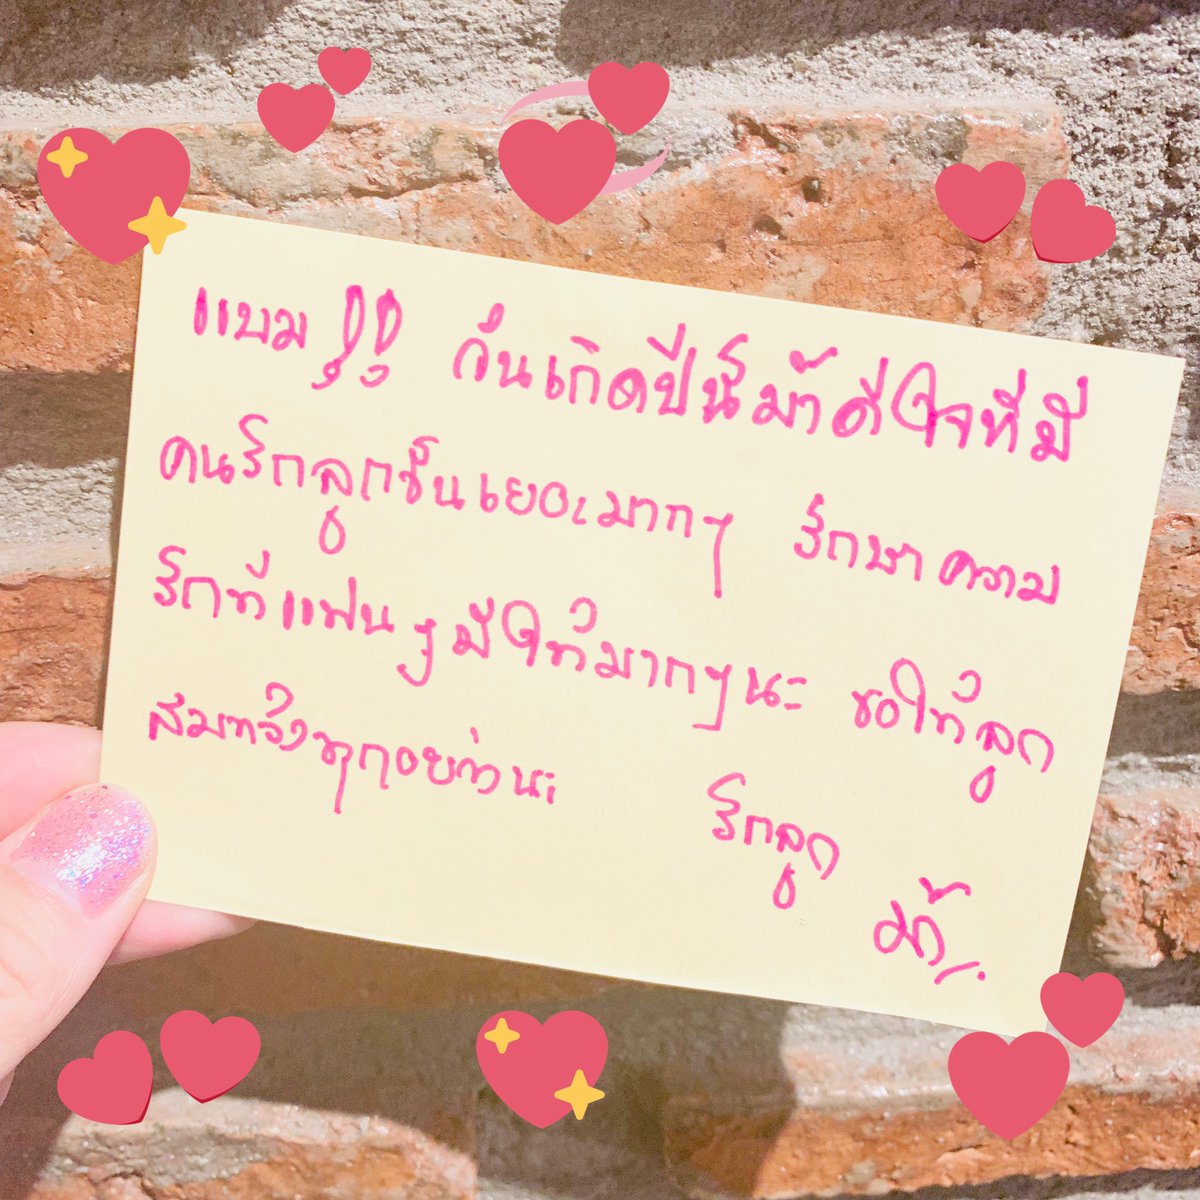 แบม !! วันเกิดปีนี้ม๊าดีใจที่มี
คนรักลูกชั้นเยอะมากๆ รักษาความ
รักที่แฟนๆมีให้มากๆนะ ขอให้ลูก
สมหวังทุกอย่างนะ รักลูก
ม๊า.